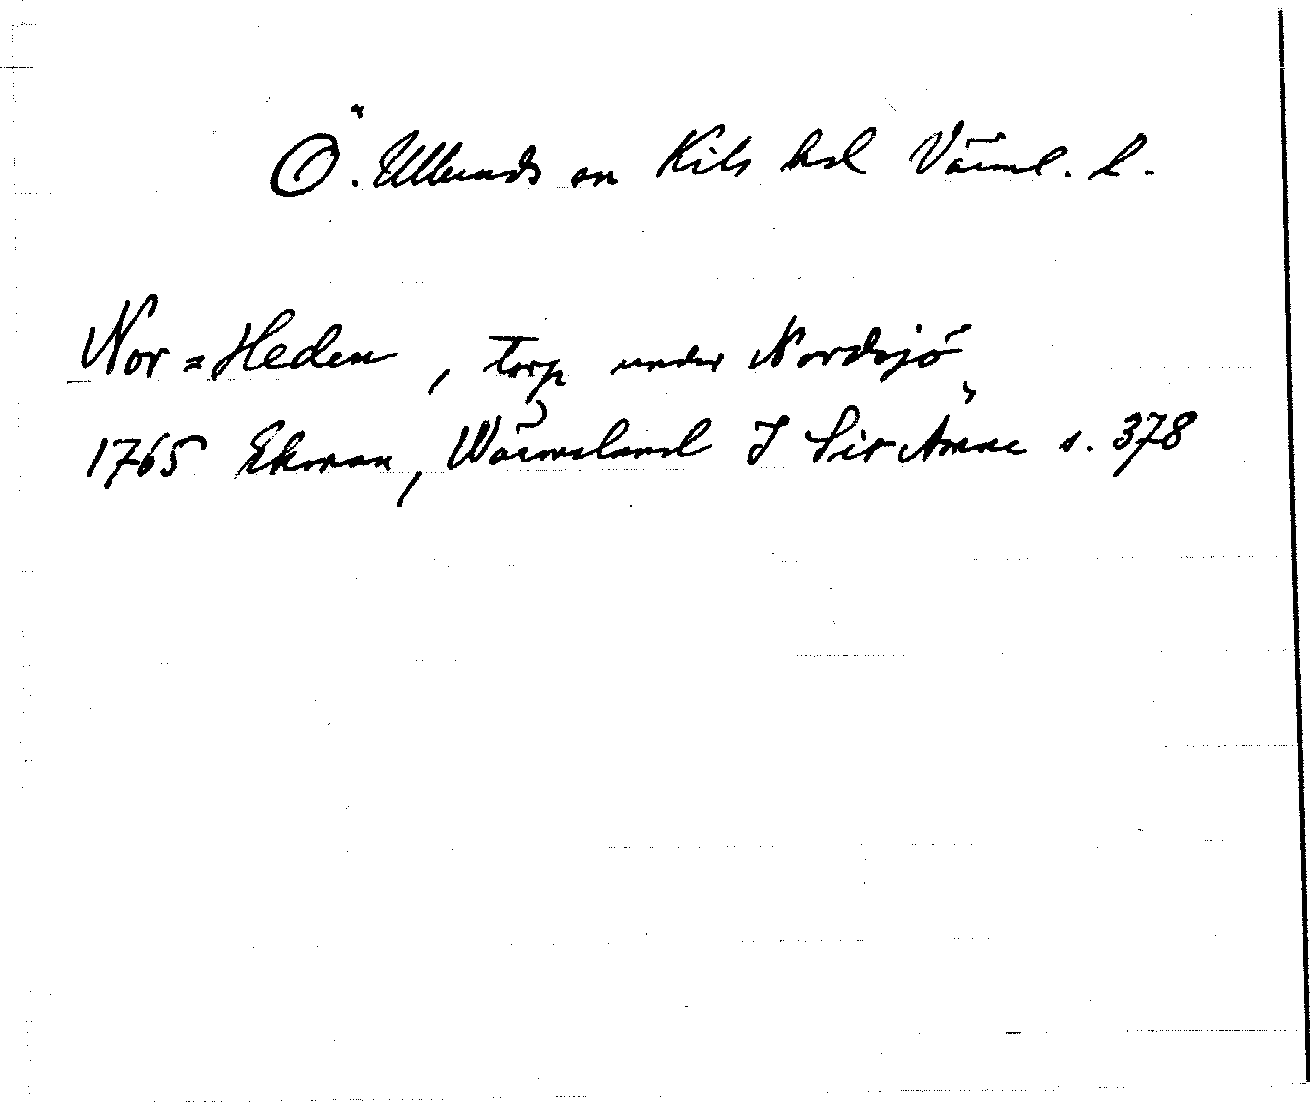 Ö. Ulleruds sn Kils hd Värml. l.
Nor=Heden, torp under Nordsjö
1765 Ekman, Wärmeland I Sir Ämne s. 378